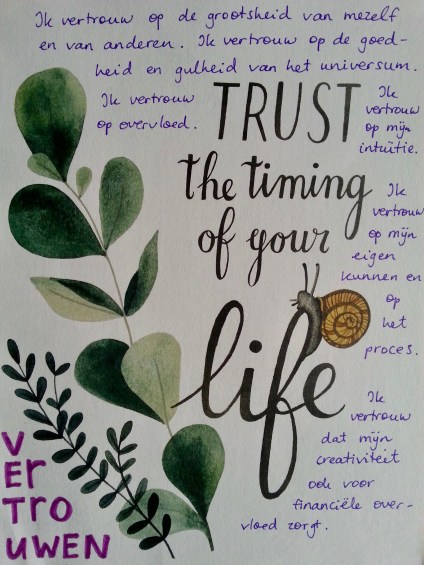 Ik vertrouw op de grootsheid van mezelf
en van anderen. Ik vertrouw op de goed-
heid en gulheid van het universum.
Ik vertrouw
op overvloed.
TRUST
the timing
of your
life
Ik
vertrouw
op mijn
intuïtie.
Ik
vertrouw
op mijn
eigen
kunnen en
op
het
proces.
Ik
vertrouw
dat mijn
creativiteit
ook voor
financiële over-
vloed zorgt.
V
ER
TRO
UWEN